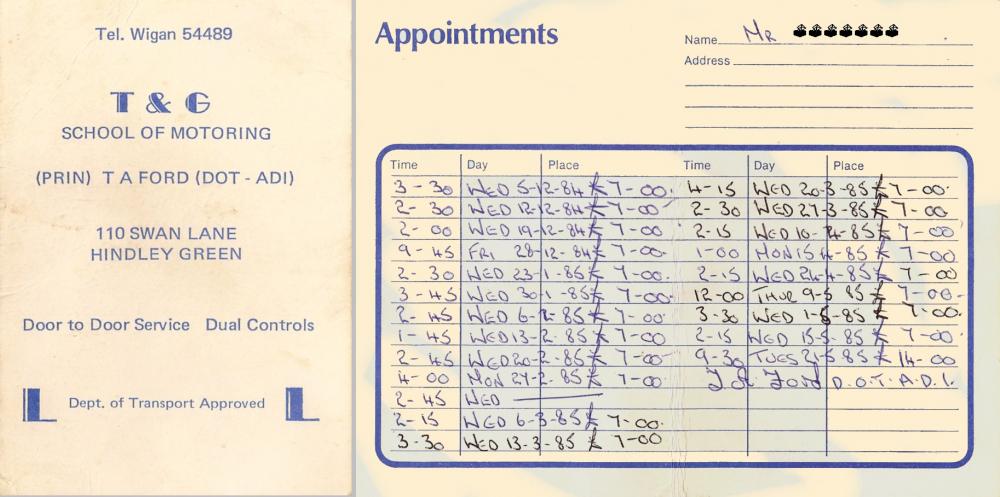 Tel. Wigan 54489
T & G
SCHOOL OF MOTORING
(PRIN) T A FORD (DOT - ADI)
110 SWAN LANE
HINDLEY GREEN
Door to Door Service Dual Controls
L Dept. of Transport Approved L
Appointments
Name MR
Address
Time Day Place
3-30 WED 5-12-84 £7-00
2-30 WED 12-12-84 £7-00
2-00 WED 19-12-84 £7-00
9-45 FRI 28-12-84 £7-00
2-30 WED 23-1-85 £7-00.
3-45 WED 30-1-85 £7-00.
2-45 WED 6-2-85 £7-00.
1-45 WED 13-2-85 £7-00.
2-45 WED 20-2-85 £7-00
4-00 MON 27-2-85 £7-00.
2-45 WED
2-15 WED 6-3-85 £7-00.
3-30 WED 13-3-85 £7-00
Time Day Place
4-15 WED 20-3-85 £7-00.
2-30 WED 27-3-85 £7-00
2-15 WED 10-4-85 £7-00
1-00 MON 15-4-85 £7-00
2-15 WED 24-4-85 £7-00
12-00 THUR 9-5 85 £7-00-
3-30 WED 1-5-85 £7-00.
2-15 WED 15-5-85 £7-00.
9-30 TUES 21-5 85 £14-00
Ford D.O.T. A.D.I.